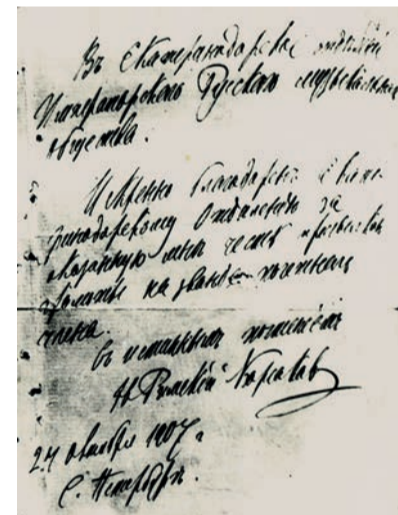 Въ Екатеринодарское отделенiе
Императорскаго Русскаго музыкальнаго
общества.
Искренно благодаренъ Екате-
ринодарскому Отделенiю за
оказанную мне честь
на званiе почетнаго
члена.
Съ истиннымъ почтенiемъ
Н. Римскiй-Корсаковъ
24 октября 1907 г.
С. Петербургъ.